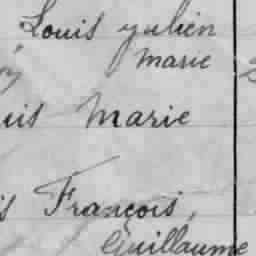 Louis yulien
Marie
uis Marie
s François,
Guillaume